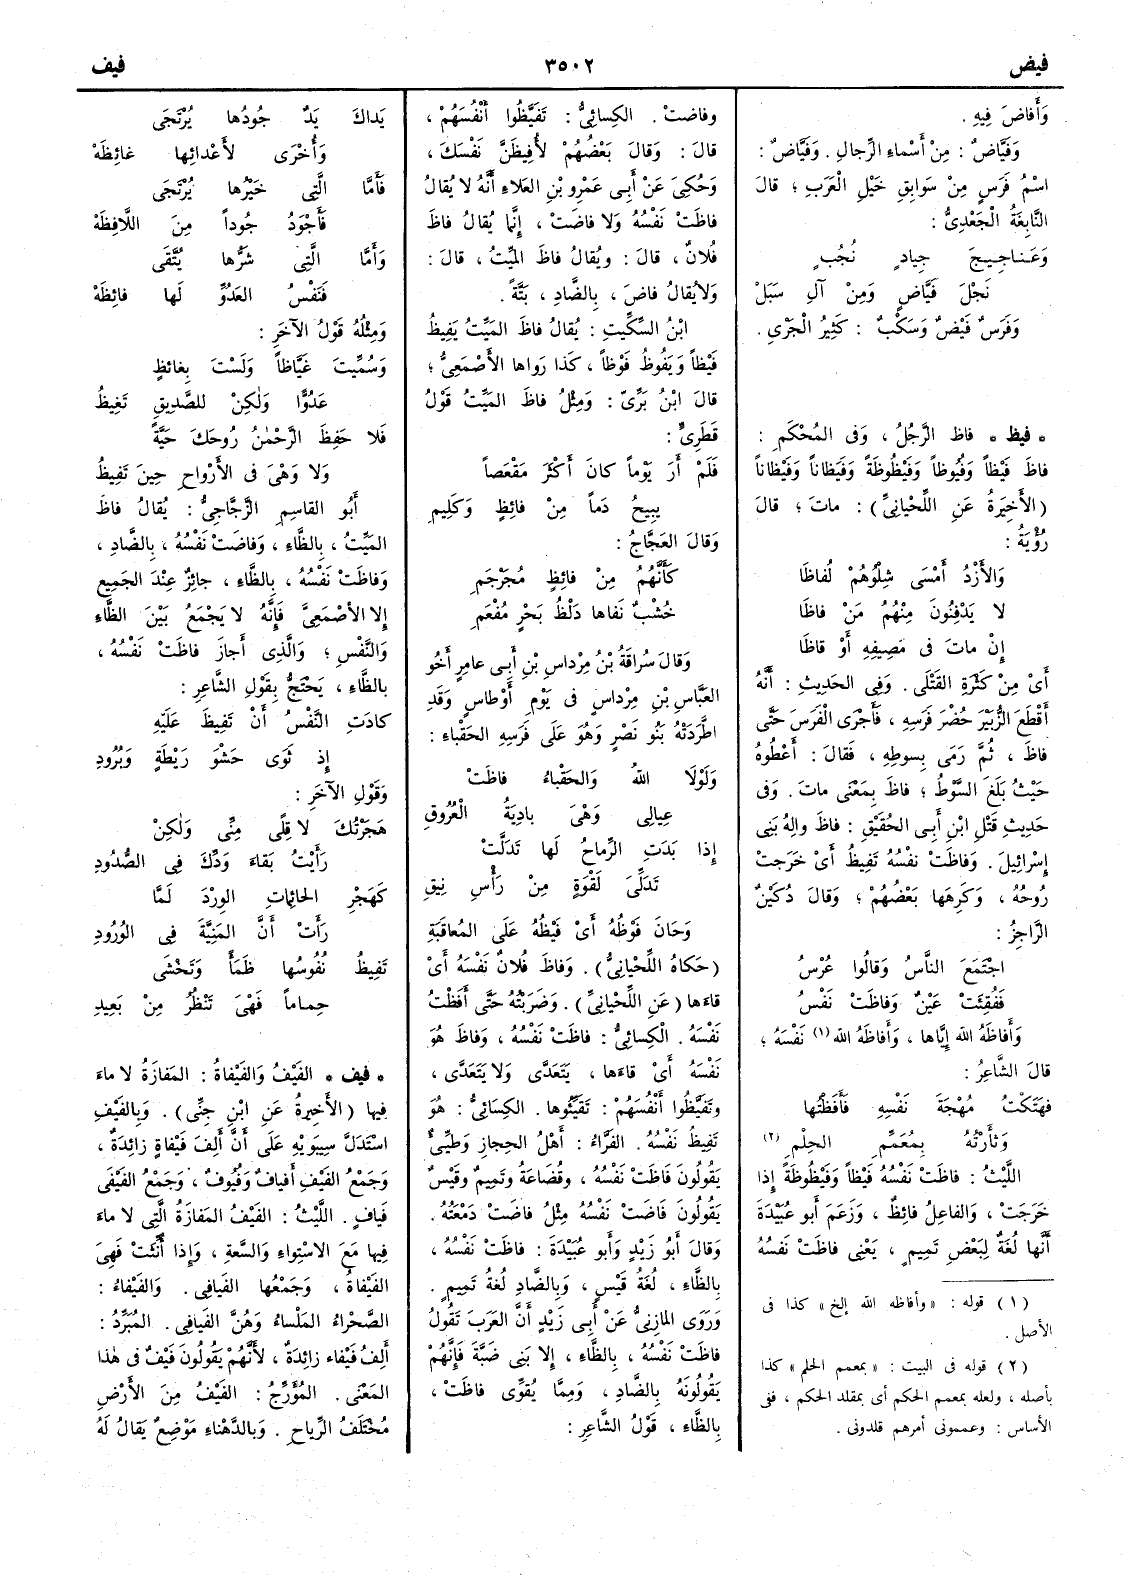 فيض
٣٥٠٢
فيف
وَأَفاضَ فِيهِ .
وَفَيَّاضٌ : مِنْ أَسْماءِ الرِّجالِ . وَفَيَّاضٌ :
اسْمُ فَرَسٍ مِنْ سَوابِقِ خَيْلِ الْعَرَبِ ؛ قالَ
النَّابِغَةُ الْجَعْدِىُّ :
وَعَناجِيجَ جِيادٍ نُجُبٍ
نَجْلَ فَيَّاضٍ وَمِنْ آلِ سَبَلْ
وَفَرَسٌ فَيْضٌ وَسَكْبٌ : كَثِيرُ الْجَرْىِ .
* فيظ * فاظَ الرَّجُلُ ، وَفى المُحْكَمِ :
فاظَ فَيْظاً وَفُيُوظاً وَفَيْظُوظَةً وَفَيَظاناً وَفَيْظاناً
(الأَخِيرَةُ عَنِ اللِّحْيانِىِّ) : ماتَ ؛ قالَ
رُؤْبَةُ :
وَالأَزْدُ أَمْسَى شِلْوُهُمْ لُفاظَا
لا يَدْفِنُونَ مِنْهُمُ مَنْ فاظَا
إِنْ ماتَ فى مَصِيفِهِ أَوْ قاظَا
أَىْ مِنْ كَثْرَةِ القَتْلَى . وَفِى الحَدِيثِ : أَنَّهُ
أَقْطَعَ الزُّبَيْرَ حُضْرَ فَرَسِهِ ، فَأَجْرَى الْفَرَسَ حَتَّى
فاظَ ، ثُمَّ رَمَى بِسوطِهِ ، فَقالَ : أَعْطُوهُ
حَيْثُ بَلَغَ السَّوْطُ ؛ فاظَ بِمَعْنَى ماتَ . وَفى
حَدِيثِ قَتْلِ ابْنِ أَبِى الحُقَيْقِ : فاظَ وإِلهُ بَنِى
إِسْرائِيلَ . وَفاظَتْ نَفْسُهُ تَفِيظُ أَىْ خَرَجَتْ
رُوحُهُ ، وَكَرِهَها بَعْضُهُمْ ؛ وَقالَ دُكَيْنٌ
الرَّاجِزُ :
اجْتَمَعَ النَّاسُ وَقالُوا عُرْسُ
فَفُقِئَتْ عَيْنٌ وَفاظَتْ نَفْسُ
وَأَفاظَهُ اللهُ إِيَّاها ، وَأَفاظَهُ اللهُ (١) نَفْسَهُ ؛
قالَ الشَّاعِرُ :
فهَتَكْتُ مُهْجَةَ نَفْسِهِ فَأَفَظْتُها
وَثَأَرْتُهُ بِمُعَمَّمِ الحِلْمِ (٢)
اللَّيْثُ : فاظَتْ نَفْسُهُ فَيْظاً وَفَيْظُوظَةً إِذا
خَرَجَتْ ، وَالفاعِلُ فائِظٌ ، وَزَعَمَ أَبو عُبَيْدَةَ
أَنَّها لُغَةٌ لِبَعْضِ تَمِيمٍ ، يَعْنِى فاظَتْ نَفْسُهُ
(١) قوله : «وأفاظه الله إلخ» كذا فى
الأصل .
(٢) قوله فى البيت : «بمعمم الحلم» كذا
بأصله ، ولعله بمعمم الحكم أى بمقلد الحكم ، ففى
الأساس : وعممونى أمرهم قلدونى .
وفاضتْ . الكِسائِىُّ : تَفَيَّظُوا أَنْفُسَهُمْ ،
قالَ : وَقالَ بَعْضُهُمْ لأُفِيظَنَّ نَفْسَكَ ،
وَحُكِىَ عَنْ أَبِى عَمْرِو بْنِ العَلاءِ أَنَّهُ لا يُقالُ
فاظَتْ نَفْسُهُ وَلا فاضَتْ ، إِنَّما يُقالُ فاظَ
فُلانٌ ، قالَ : ويُقالُ فاظَ المَيِّتُ ، قالَ :
وَلا يُقالُ فاضَ ، بِالضَّادِ ، بَتَّةً .
ابْنُ السِّكِّيتِ : يُقالُ فاظَ المَيِّتُ يَفِيظُ
فَيْظاً وَيَفُوظُ فَوْظاً ، كَذا رَواها الأَصْمَعِىُّ ؛
قالَ ابْنُ بَرِّىّ : وَمِثْلُ فاظَ المَيِّتُ قَوْلُ
قَطَرِىٍّ :
فَلَمْ أَرَ يَوْماً كانَ أَكْثَرَ مَقْعَصاً
يبِيحُ دَماً مِنْ فائِظٍ وَكَلِيمِ
وَقالَ العَجَّاجُ :
كَأَنَّهُمْ مِنْ فائِظٍ مُجَرْجَمِ
خُشْبٌ نَفاها دَلْظُ بَحْرٍ مُفْعَمِ
وَقالَ سُراقَةُ بْنُ مِرْداسِ بْنِ أَبِى عامِرٍ أَخُو
العَبَّاسِ بْنِ مِرْداسٍ فى يَوْمِ أَوْطاسٍ وَقَدِ
اطَّرَدَتْهُ بَنُو نَصْرٍ وَهُوَ عَلَى فَرَسِهِ الحَقْباءِ :
وَلَوْلَا اللهُ وَالحَقْباءُ فاظَتْ
عِيالِى وَهْىَ بادِيَةُ الْعُرُوقِ
إِذا بَدَتِ الرِّماحُ لَها تَدَلَّتْ
تَدَلِّىَ لَقْوَةٍ مِنْ رَأْسِ نِيقِ
وَحَانَ فَوْظُهُ أَىْ فَيْظُهُ عَلَى المُعاقَبَةِ
(حَكاهُ اللِّحْيانِىُّ) . وَفاظَ فُلانٌ نَفْسَهُ أَىْ
قاءَها (عَنِ اللِّحْيانِىِّ) . وَضَرَبْتُهُ حَتَّى أَفَظْتُ
نَفْسَهُ . الْكِسائِىُّ : فاظَتْ نَفْسُهُ ، وَفاظَ هُوَ
نَفْسَهُ أَىْ قاءَها ، يَتَعَدَّى وَلا يَتَعَدَّى ،
وتَفَيَّظُوا أَنْفُسَهُمْ : تَقَيَّئُوها . الكِسائِىُّ : هُوَ
تَفِيظُ نَفْسُهُ . الفَرَّاءُ : أَهْلُ الحِجازِ وَطَيِّئٌ
يَقُولُونَ فاظَتْ نَفْسُهُ ، وَقُضَاعَةُ وتَمِيم وَقَيْسٌ
يَقُولُونَ فَاضَتْ نَفْسُهُ مِثْلُ فاضَتْ دَمْعَتُهُ .
وَقالَ أَبُو زَيْدٍ وَأَبو عُبَيْدَةَ : فاظَتْ نَفْسُهُ ،
بِالظَّاءِ ، لُغَةُ قَيْسٍ ، وَبِالضَّادِ لُغَةُ تَمِيمٍ .
وَرَوَى المازِنِىُّ عَنْ أَبِى زَيْدٍ أَنَّ العَرَبَ تَقُولُ
فاظَتْ نَفْسُهُ ، بِالظَّاءِ ، إِلا بَنِى ضَبَّةَ فَإِنَّهُمْ
يَقُولُونَهُ بِالضَّادِ ، وَمِمَّا يُقَوِّى فاظَتْ ،
بِالظَّاءِ ، قَوْلُ الشَّاعِرِ :
يَداكَ يَدٌ جُودُها يُرْتَجَى
وَأُخْرَى لأَعْدائِها غائِظَهْ
فَأَمَّا الَّتِى خَيْرُها يُرْتَجَى
فَأَجْوَدُ جُوداً مِنَ اللَّافِظَهْ
وَأَمَّا الَّتِى شَرُّها يُتَّقَى
فَنَفْسُ العَدُوِّ لَها فائِظَهْ
وَمِثْلُهُ قَوْلُ الآخَرِ :
وَسُمِّيتَ غَيَّاظاً وَلَسْتَ بِغائِظٍ
عَدُوًّا وَلٰكِنْ للصَّدِيقِ تَغِيظُ
فَلا حَفِظَ الرَّحْمٰنُ رُوحَكَ حَيَّةً
وَلا وَهْىَ فى الأَرْواحِ حِينَ تَفِيظُ
أَبُو القاسِمِ الزَّجَّاجِىُّ : يُقالُ فاظَ
المَيِّتُ ، بِالظَّاءِ ، وَفاضَتْ نَفْسُهُ ، بِالضَّادِ ،
وَفاظَتْ نَفْسُهُ ، بِالظَّاءِ ، جائِزٌ عِنْدَ الجَمِيعِ
إِلا الأَصْمَعِىَّ فَإِنَّهُ لا يَجْمَعُ بَيْنَ الظَّاءِ
وَالنَّفْسِ ؛ وَالَّذِى أَجازَ فاظَتْ نَفْسُهُ ،
بِالظَّاءِ ، يَحْتَجُّ بِقَوْلِ الشَّاعِرِ :
كادَتِ النَّفْسُ أَنْ تَفِيظَ عَلَيْهِ
إِذ ثَوَى حَشْوَ رَيْطَةٍ وَبُرُودِ
وَقَوْلِ الآخَرِ :
هَجَرْتُكَ لا قِلًى مِنِّى وَلٰكِنْ
رَأَيْتُ بَقاءَ وَدِّكَ فِى الصُّدُودِ
كَهَجْرِ الحائِماتِ الوِرْدَ لَمَّا
رَأَتْ أَنَّ المَنِيَّةَ فِى الوُرُودِ
تَفِيظُ نُفُوسُها ظَمَأً وَتَخْشَى
حِماماً فَهْىَ تَنْظُرُ مِنْ بَعِيدِ
* فيف * الفَيْفُ وَالفَيْفاةُ : المَفازَةُ لا ماءَ
فِيها (الأَخِيرَةُ عَنِ ابْنِ جِنِّى) . وَبِالفَيْفِ
اسْتَدَلَّ سِيبَوَيْهِ عَلَى أَنَّ أَلِفَ فَيْفاةٍ زائِدَةٌ ،
وَجَمْعُ الفَيْفِ أَفيافٌ وَفُيُوفٌ ، وَجَمْعُ الفَيْفَى
فَيافٍ . اللَّيْثُ : الفَيْفُ المَفازَةُ الَّتِى لا ماءَ
فِيها مَعَ الاسْتِواءِ وَالسَّعَةِ ، وَإِذا أُنِّثَتْ فَهِىَ
الفَيْفاةُ ، وَجَمْعُها الفَيافِى . وَالفَيْفاءُ :
الصَّحْراءُ المَلْساءُ وَهُنَّ الفَيافِى . المُبَرِّدُ :
أَلِفُ فَيْفاء زائِدَةٌ ، لأَنَّهُمْ يَقُولُونَ فَيْفٌ فى هٰذا
المَعْنَى . المُؤَرِّجُ : الفَيْفُ مِنَ الأَرْضِ
مُخْتَلَفُ الرِّياحِ . وَبِالدَّهْناءِ مَوْضِعٌ يُقالُ لَهُ